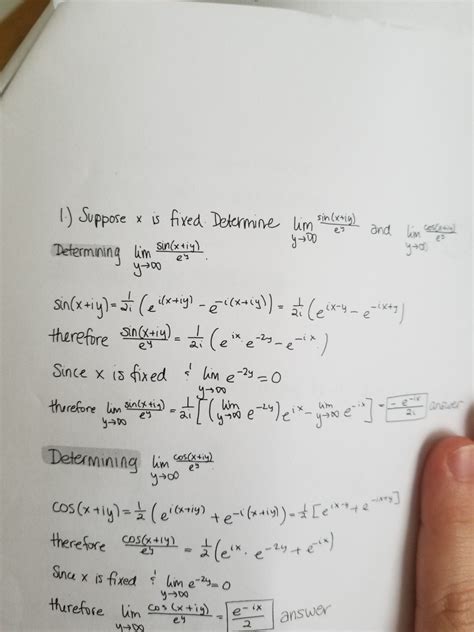 1.) Suppose x is fixed. Determine lim y→∞ sin(x+iy)/e^y and lim y→∞ cos(x+iy)/e^y
Determining lim y→∞ sin(x+iy)/e^y.
sin(x+iy) = 1/2i (e^i(x+iy) - e^-i(x+iy)) = 1/2i (e^ix-y - e^-ix+y)
therefore sin(x+iy)/e^y = 1/2i (e^ix · e^-2y - e^-ix)
Since x is fixed & lim y→∞ e^-2y = 0
therefore lim y→∞ sin(x+iy)/e^y = 1/2i [(lim y→∞ e^-2y) e^ix - lim y→∞ e^-ix] = -e^-ix/2i answer
Determining lim y→∞ cos(x+iy)/e^y
cos(x+iy) = 1/2 (e^i(x+iy) + e^-i(x+iy)) = 1/2 [e^ix-y + e^-ix+y]
therefore cos(x+iy)/e^y = 1/2 (e^ix · e^-2y + e^-ix)
Since x is fixed & lim y→∞ e^-2y = 0
therefore lim y→∞ cos(x+iy)/e^y = e^-ix/2 answer